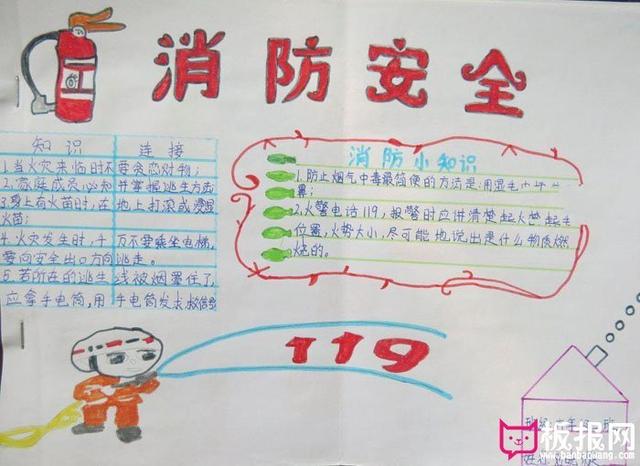 消防安全
知识 连接
1.当火灾来临时不要贪恋财物;
2.家庭成员必知并掌握逃生方法
3.身上有火苗时,在地上打滚或
火苗;
4.火灾发生时,千万不要乘坐电梯,
要向安全出口方向逃走。
5.若所在的逃生线被烟罩住了
应拿手电筒,用手电筒发求救信号
消防小知识
1.防止烟气中毒最简便的方法是:用湿毛巾
鼻;
2.火警电话119,报警时应讲清楚起火
位置,火势大小,尽可能地说出是什么物质燃
烧的。
119
班级
板报网
www.banbaowang.com